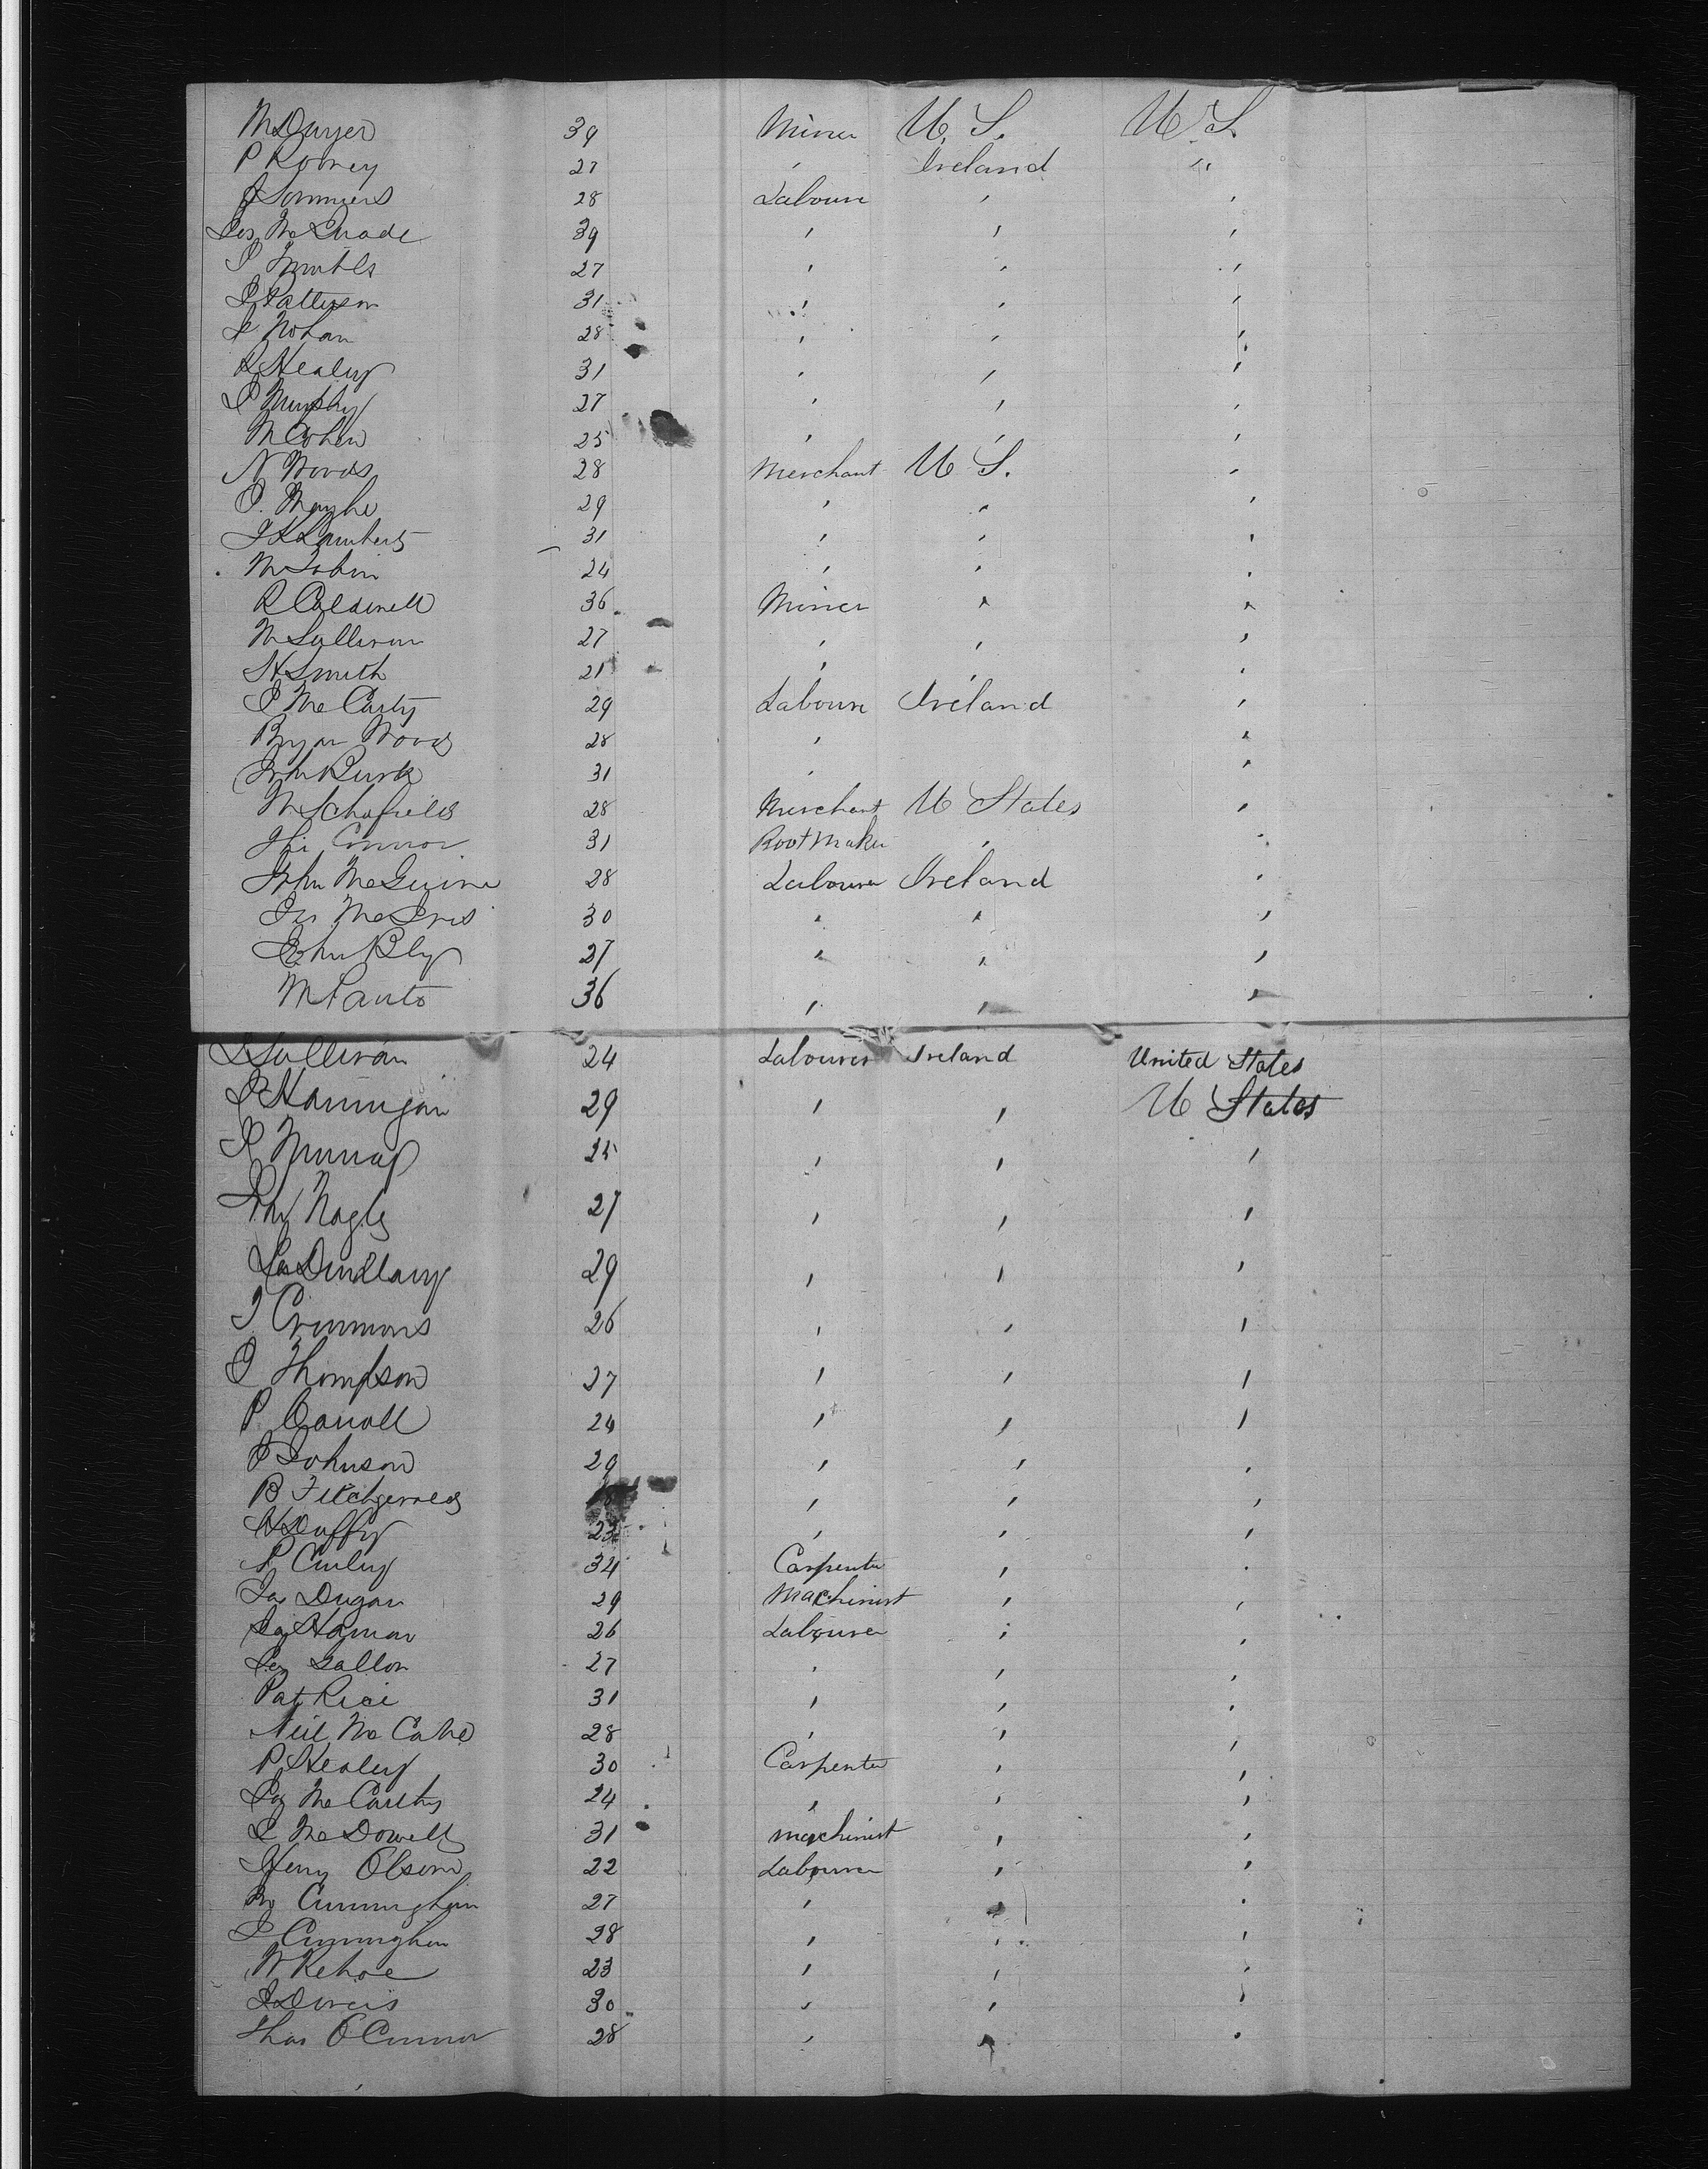 M Dwyer 39 Miner U. S. U S.
P Roney 27 " Ireland "
J Sommers 28 Laboure " "
Jas McQuade 39 " " "
J 27 " " "
J Patterson 31 " " "
J Nolan 28 " " "
R Healey 31 " " "
J Murphy 27 " " "
M Cohen 25 " " "
N Woods 28 Merchant U S. "
O. Maghe 29 " " "
J K Lambert 31 " " "
M Tobin 24 " " "
R Caldwell 36 Miner " "
M Sullivan 27 " " "
H Smith 21 " " "
J McCarty 29 Laboure Ireland "
Bryan Woods 28 " "
John Burk 31 " "
M Schofield 28 Merchant U States "
Connor 31 Bootmaker " "
John McGuire 28 Labourer Ireland "
Jas 30 " " "
John Bly 27 " " "
M 36 " " "
J Sullivan 24 Labourer Ireland United States
J Hannigan 29 " " U States
J Murray 25 " " "
John Nagle 27 " " "
Jas 29 " " "
J Crimmons 26 " " "
J Thompson 27 " " "
P Carroll 24 " " "
J Johnson 29 " " "
B Fitchgerald " " "
H Duffy 23 " " "
P Curley 34 Carpenter " "
Jas Dugan 29 Machinist " "
Jas 26 Labourer " "
Jas Gallon 27 " " "
Pat Rice 31 " " "
Neil McCabe 28 " " "
P Healey 30 Carpenter " "
Jas McCarthy 24 " " "
J McDowell 31 machinist " "
Henry Olsom 22 Labourer " "
Cunningham 27 " " "
J Cunningham 28 " " "
W Kehoe 23 " " "
J Davis 30 " " "
Thos O'Connor 28 " " "